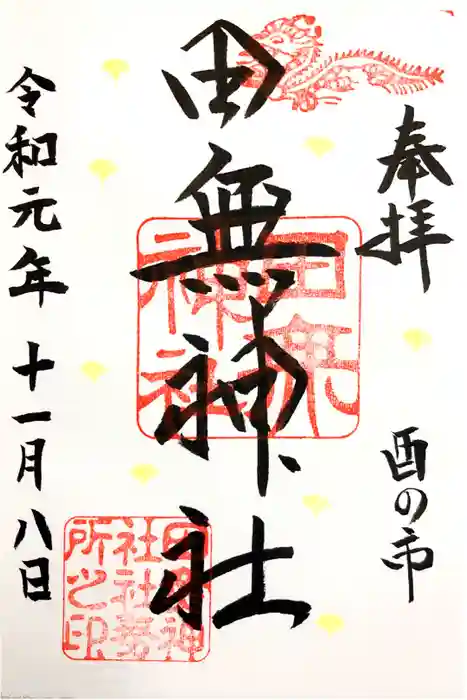 奉拝
酉の市
田無神社
田無神社
田無神社社務所之印
令和元年十一月八日